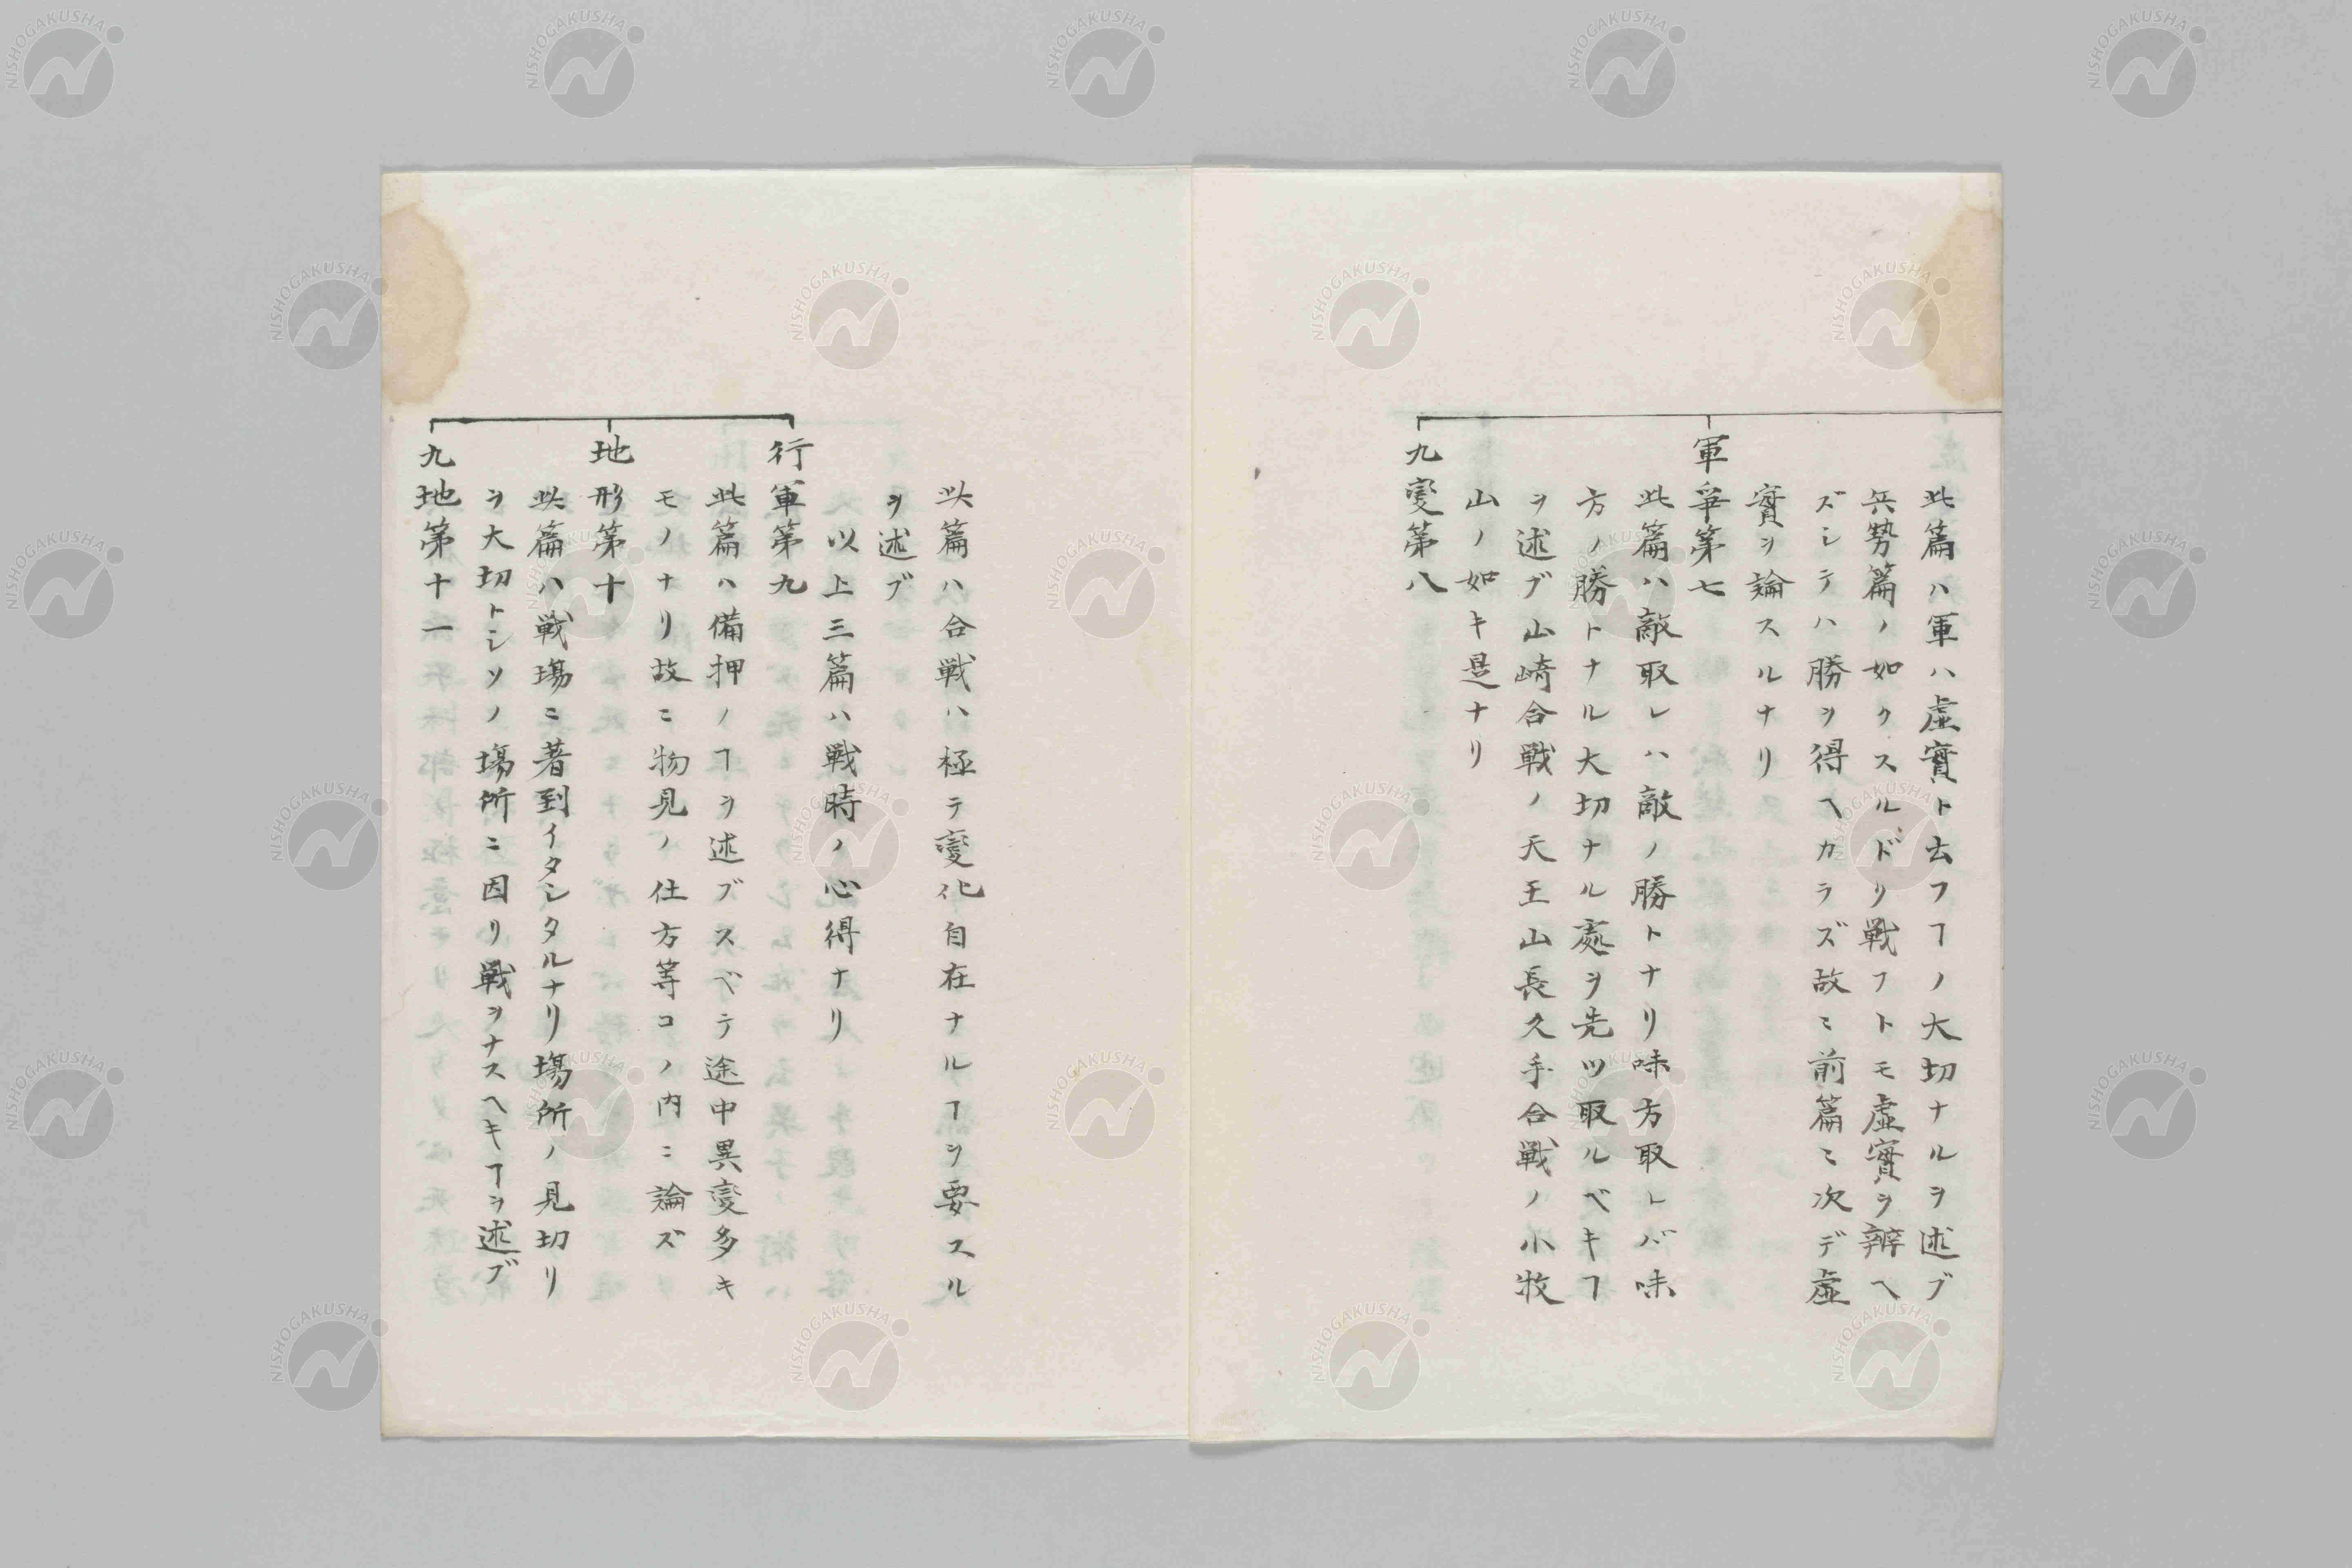 此篇ハ軍ハ虚實ト云フヿノ大切ナルヲ述ブ
兵勢篇ノ如クスルドリ戦フトモ虚實ヲ辨ヘ
ズシテハ勝ヲ得ヘカラズ故ニ前篇ニ次デ虚
實ヲ論スルナリ
軍爭第七
此篇ハ敵取レハ敵ノ勝トナリ味方取レバ味
方ノ勝トナル大切ナル處ヲ先ツ取ルベキヿ
ヲ述ブ山崎合戦ノ天王山長久手合戦ノ小牧
山ノ如キ是ナリ
九變第八
此篇ハ合戦ハ極テ變化自在ナルヿヲ要スル
ヲ述ブ
以上三篇ハ戦時ノ心得ナリ
行軍第九
此篇ハ備押ノヿヲ述ブスベテ途中異變多キ
モノナリ故ニ物見ノ仕方等コノ内ニ論ズ
地形第十
此篇ハ戦塲ニ著到イタシタルナリ塲所ノ見切リ
ヲ大切トシソノ塲所ニ因リ戦ヲナスヘキヿヲ述ブ
九地第十一
NISHOGAKUSHA